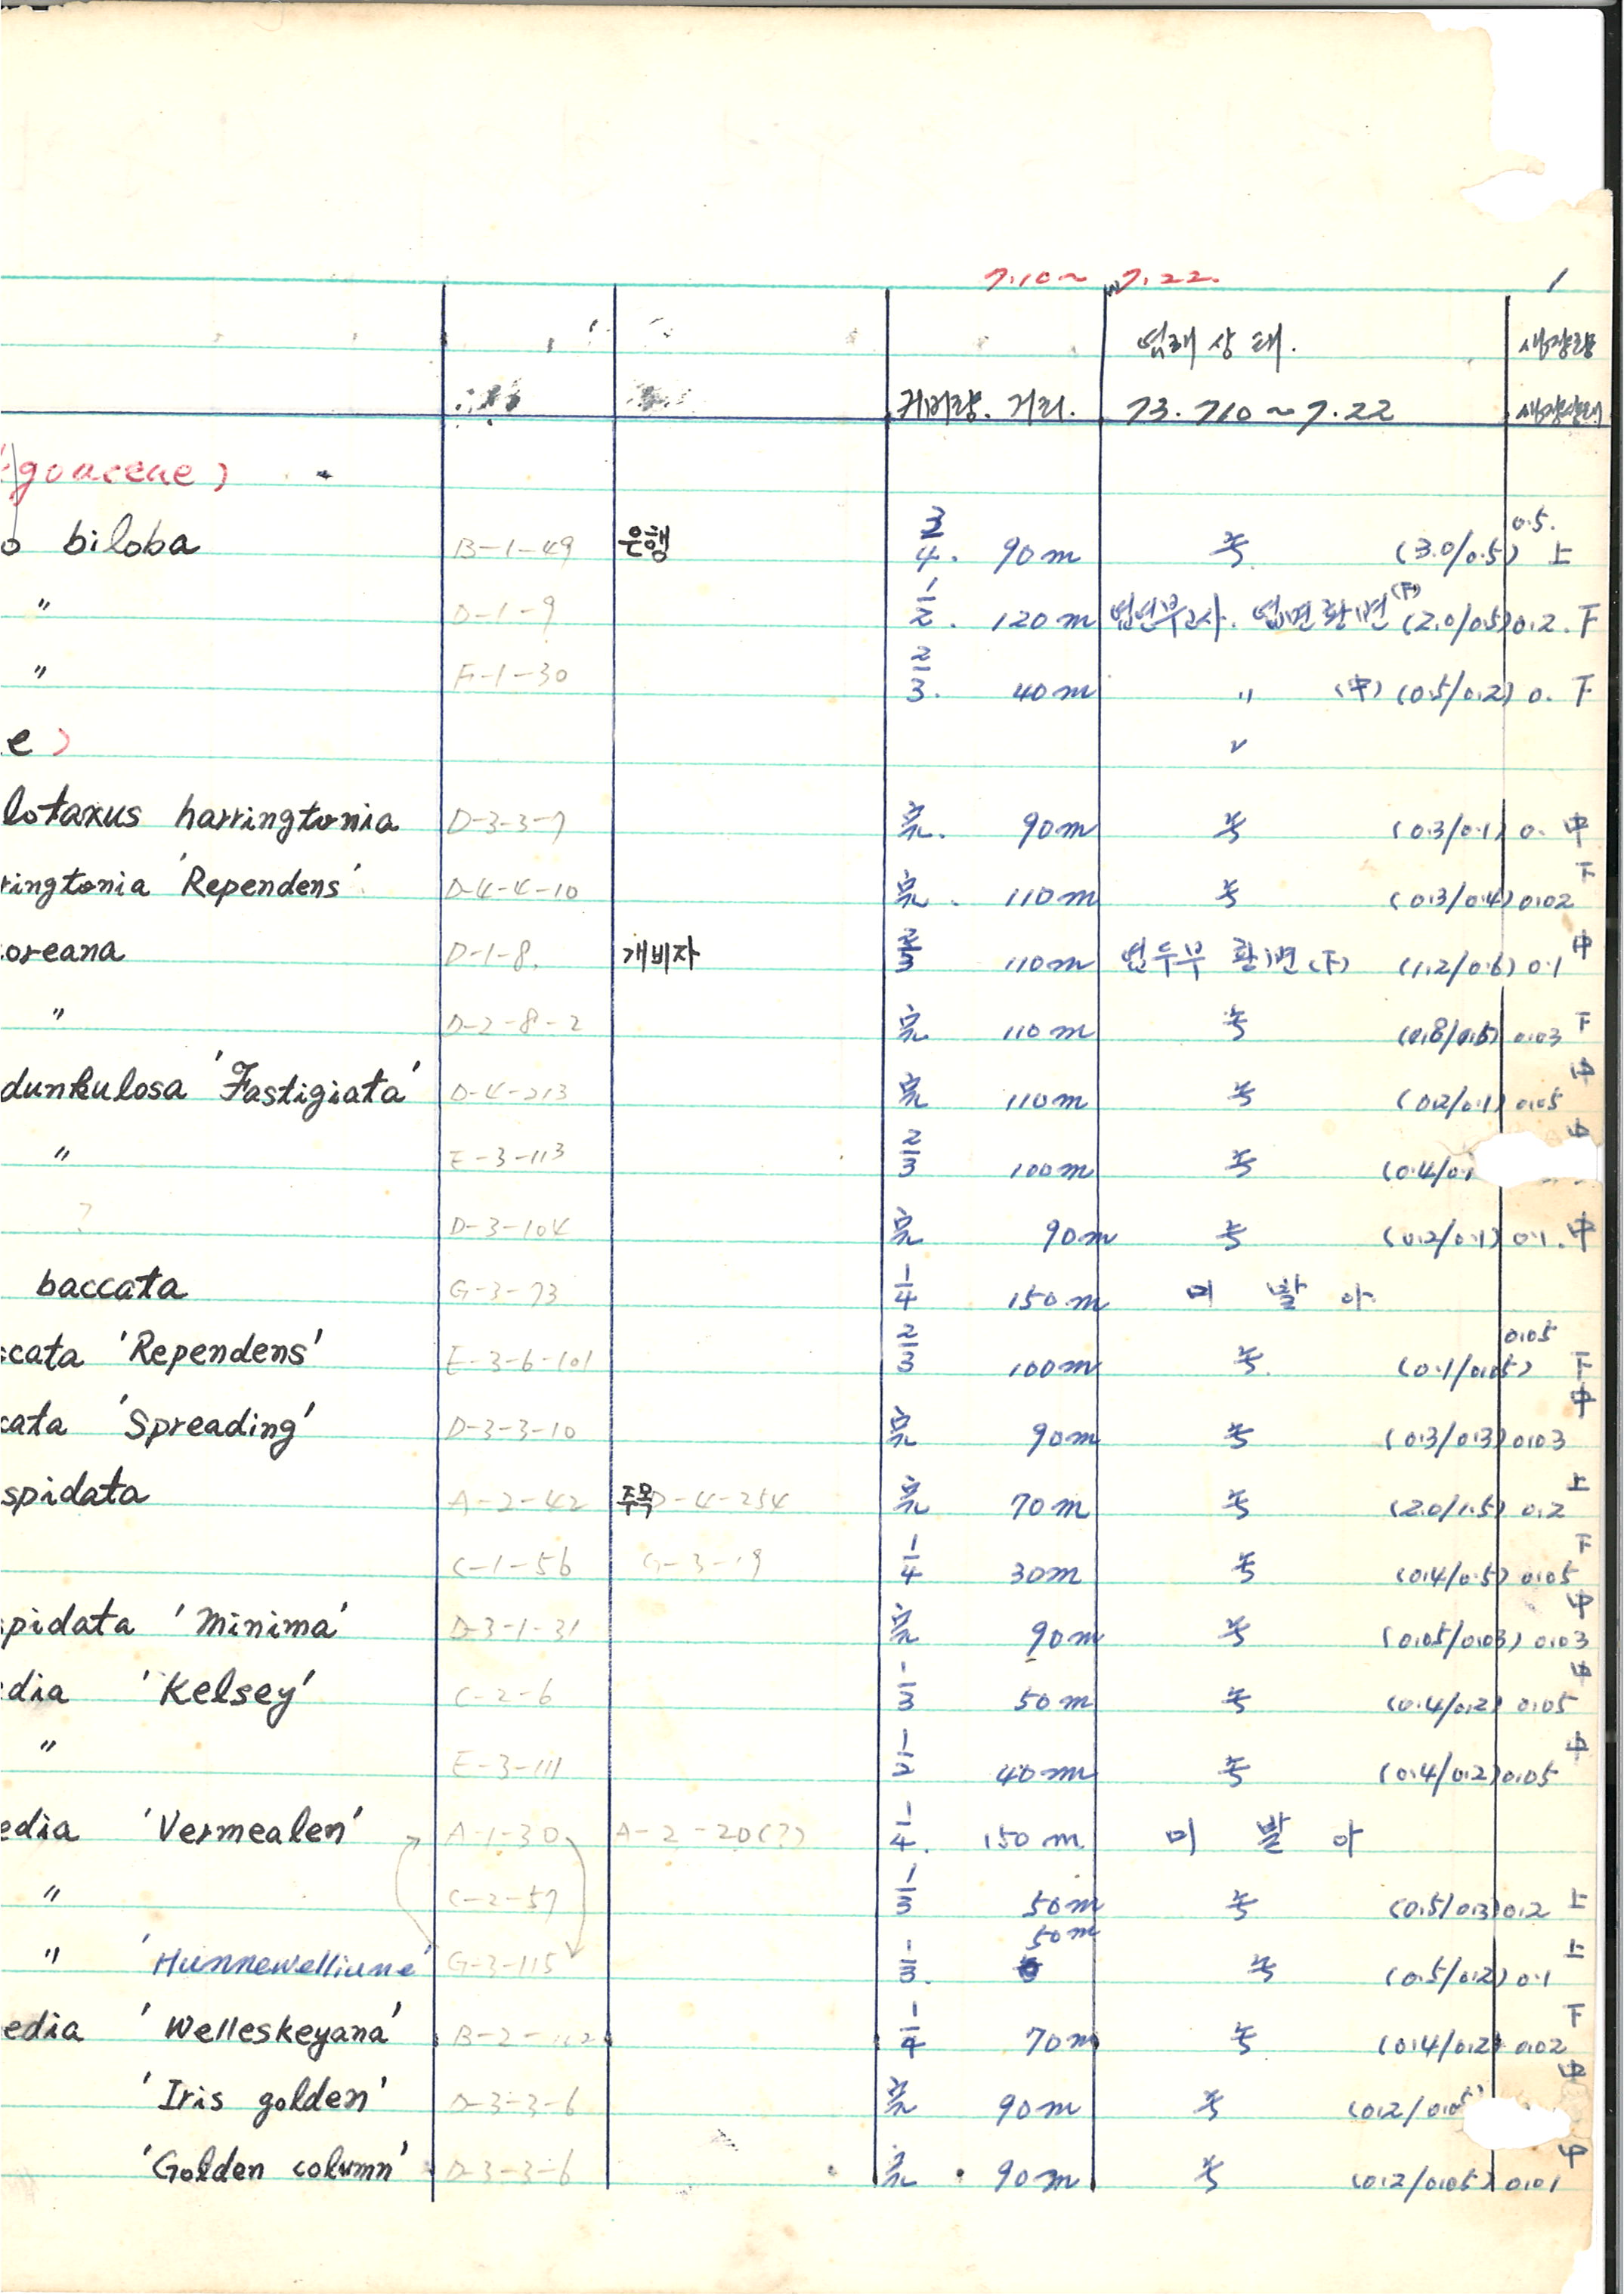 7.10~ 7.22. 1
엽래상태. 생장량
귀머량. 거리. 73. 7.10~7.22 생장상태
goaceae)
o biloba B-1-49 은행 3/4. 90m 녹 (3.0/0.5) 0.5. 上
" D-1-9 1/2. 120m 황변(下) (2.0/0.5) 0.2. 下
" F-1-30 2/3. 40m " (中) (0.5/0.2) 0. 下
e)
lotaxus harringtonia D-3-3-7 完. 90m 녹 (0.3/0.1) 0. 中
ringtonia 'Rependens' D-4-4-10 完. 110m 녹 (0.3/0.4) 0.02 下
oreana D-1-8. 개비자 110m 황변(下) (1.2/0.6) 0.1 中
" D-2-8-2 完 110m 녹 (0.8/0.5) 0.03 下
dunkulosa 'Fastigiata' D-4-213 完 110m 녹 (0.2/0.1) 0.05 中
" E-3-113 2/3 100m 녹 (0.4/0.1 中
? D-3-104 完 90m 녹 (0.2/0.1) 0.1. 中
baccata G-3-73 1/4 150m 미 발 아
cata 'Rependens' E-3-6-101 2/3 100m 녹. (0.1/0.05) 0.05 下
cata 'Spreading' D-3-3-10 完 90m 녹 (0.3/0.3) 0.03 中
spidata A-2-42 주목 D-4-254 完 70m 녹 (2.0/1.5) 0.2 上
C-1-56 G-3-19 1/4 30m 녹 (0.4/0.5) 0.05 下
pidata 'Minima' D-3-1-31 完 90m 녹 (0.05/0.03) 0.03 中
dia 'Kelsey' C-2-6 1/3 50m 녹 (0.4/0.2) 0.05 中
" E-3-111 1/2 40m 녹 (0.4/0.2) 0.05 中
edia 'Vermealen' A-1-30 A-2-20(?) 1/4. 150m 미 발 아
" C-2-57 1/3 50m 녹 (0.5/0.3) 0.2 上
" 'Hunnewelliune' G-3-115 1/3. 50m 녹 (0.5/0.2) 0.1 上
edia 'Welleskeyana' B-2-112 1/4 70m 녹 (0.4/0.2) 0.02 下
'Iris golden' D-3-3-6 完 90m 녹 (0.2/0.05) 中
'Golden column' D-3-3-6 完 90m 녹 (0.2/0.05) 0.01 中